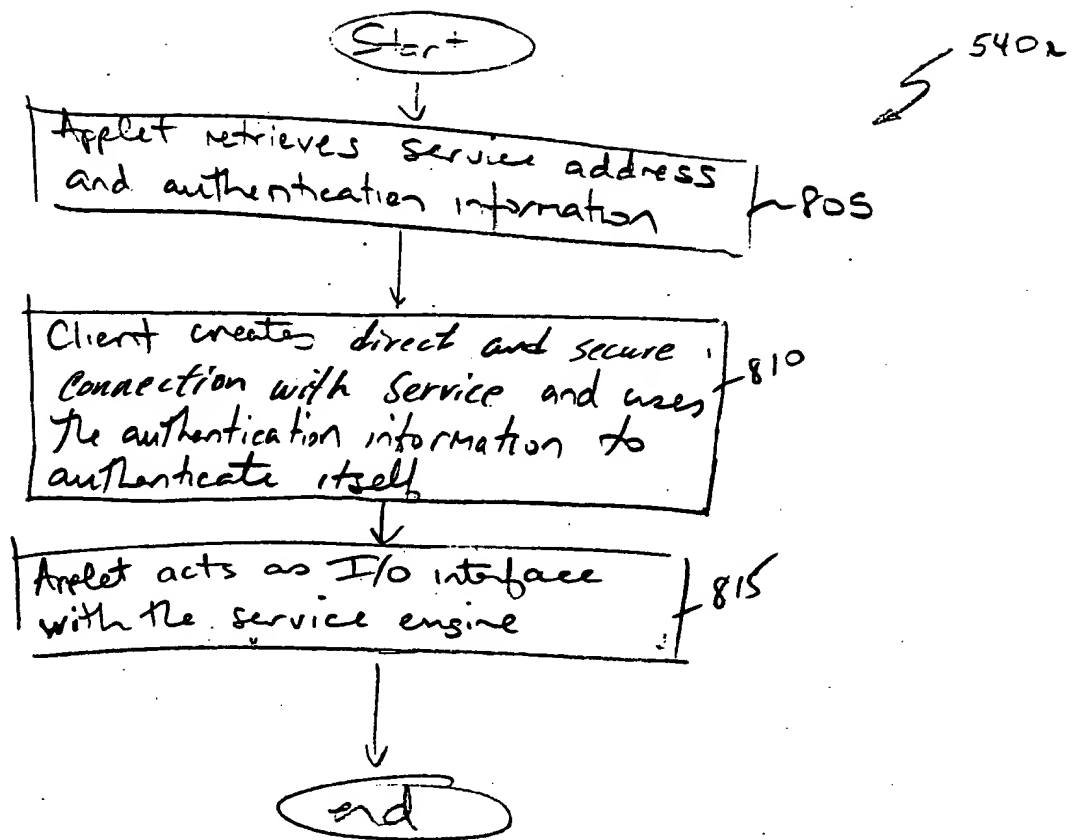 Start
540a
Applet retrieves service address
and authentication information
805
Client creates direct and secure
connection with service and uses
the authentication information to
authenticate itself
810
Applet acts as I/O interface
with the service engine
815
end